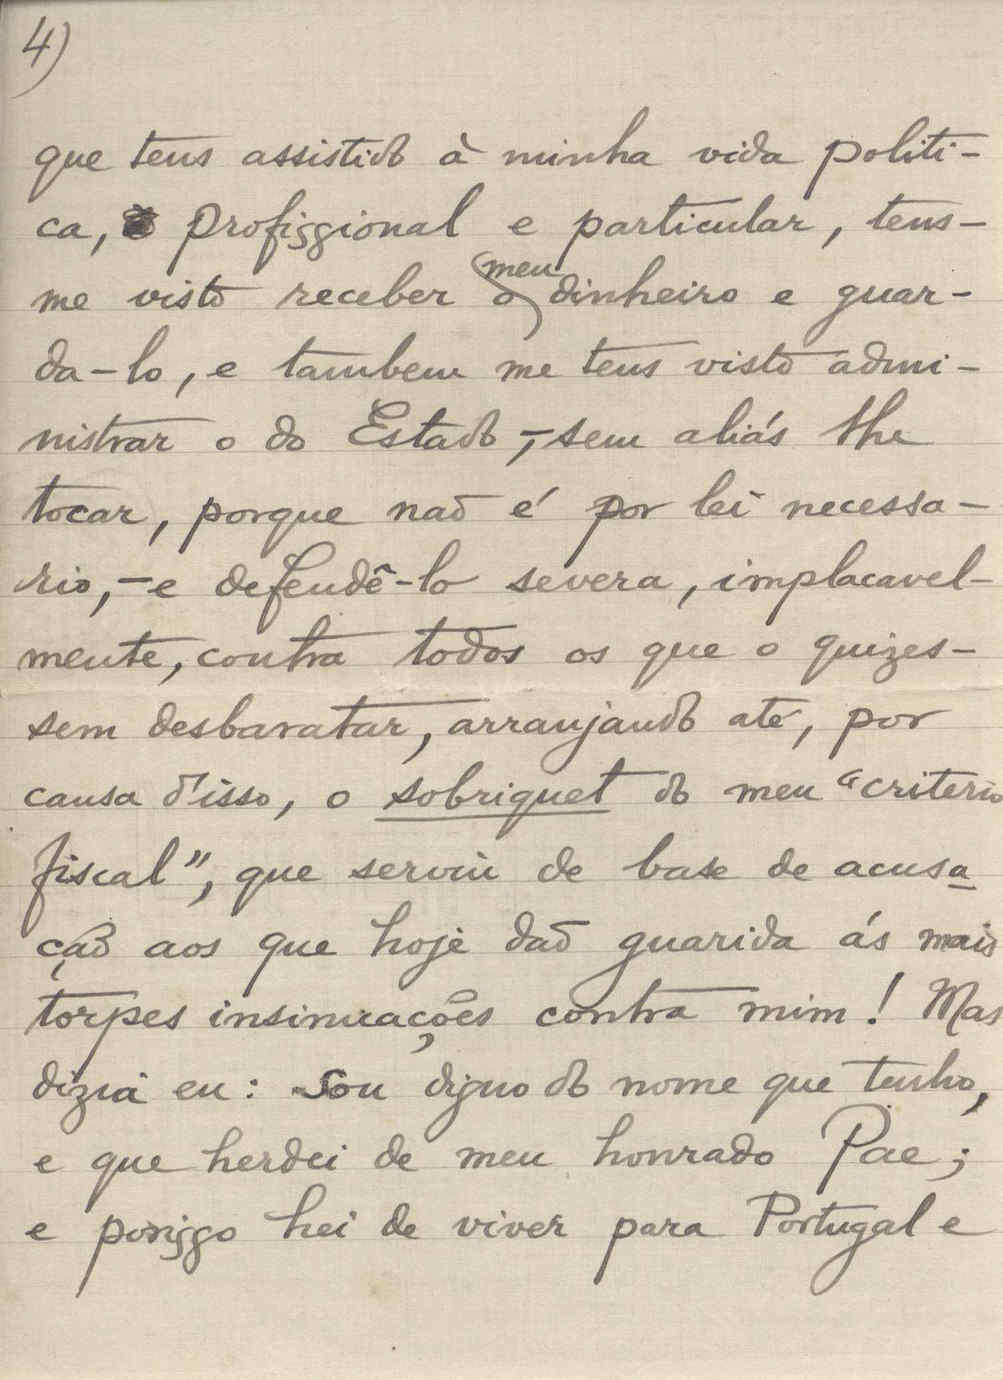 4)
que tens assistido à minha vida politi-
ca, profissional e particular, tens-
me visto receber o meu dinheiro e guar-
da-lo, e tambem me tens visto admi-
nistrar o do Estado,-sem aliás lhe
tocar, porque não é por lei necessa-
rio,-e defendê-lo severa, implacavel-
mente, contra todos os que o quizes-
sem desbaratar, arranjando até, por
causa d'isso, o sobriquet do meu "criterio
fiscal", que serviu de base de acusa
ção aos que hoje dão guarida ás mais
torpes insinuações contra mim! Mas
dizia eu: Sou digno do nome que tenho,
e que herdei de meu honrado Pae;
e porisso hei de viver para Portugal e